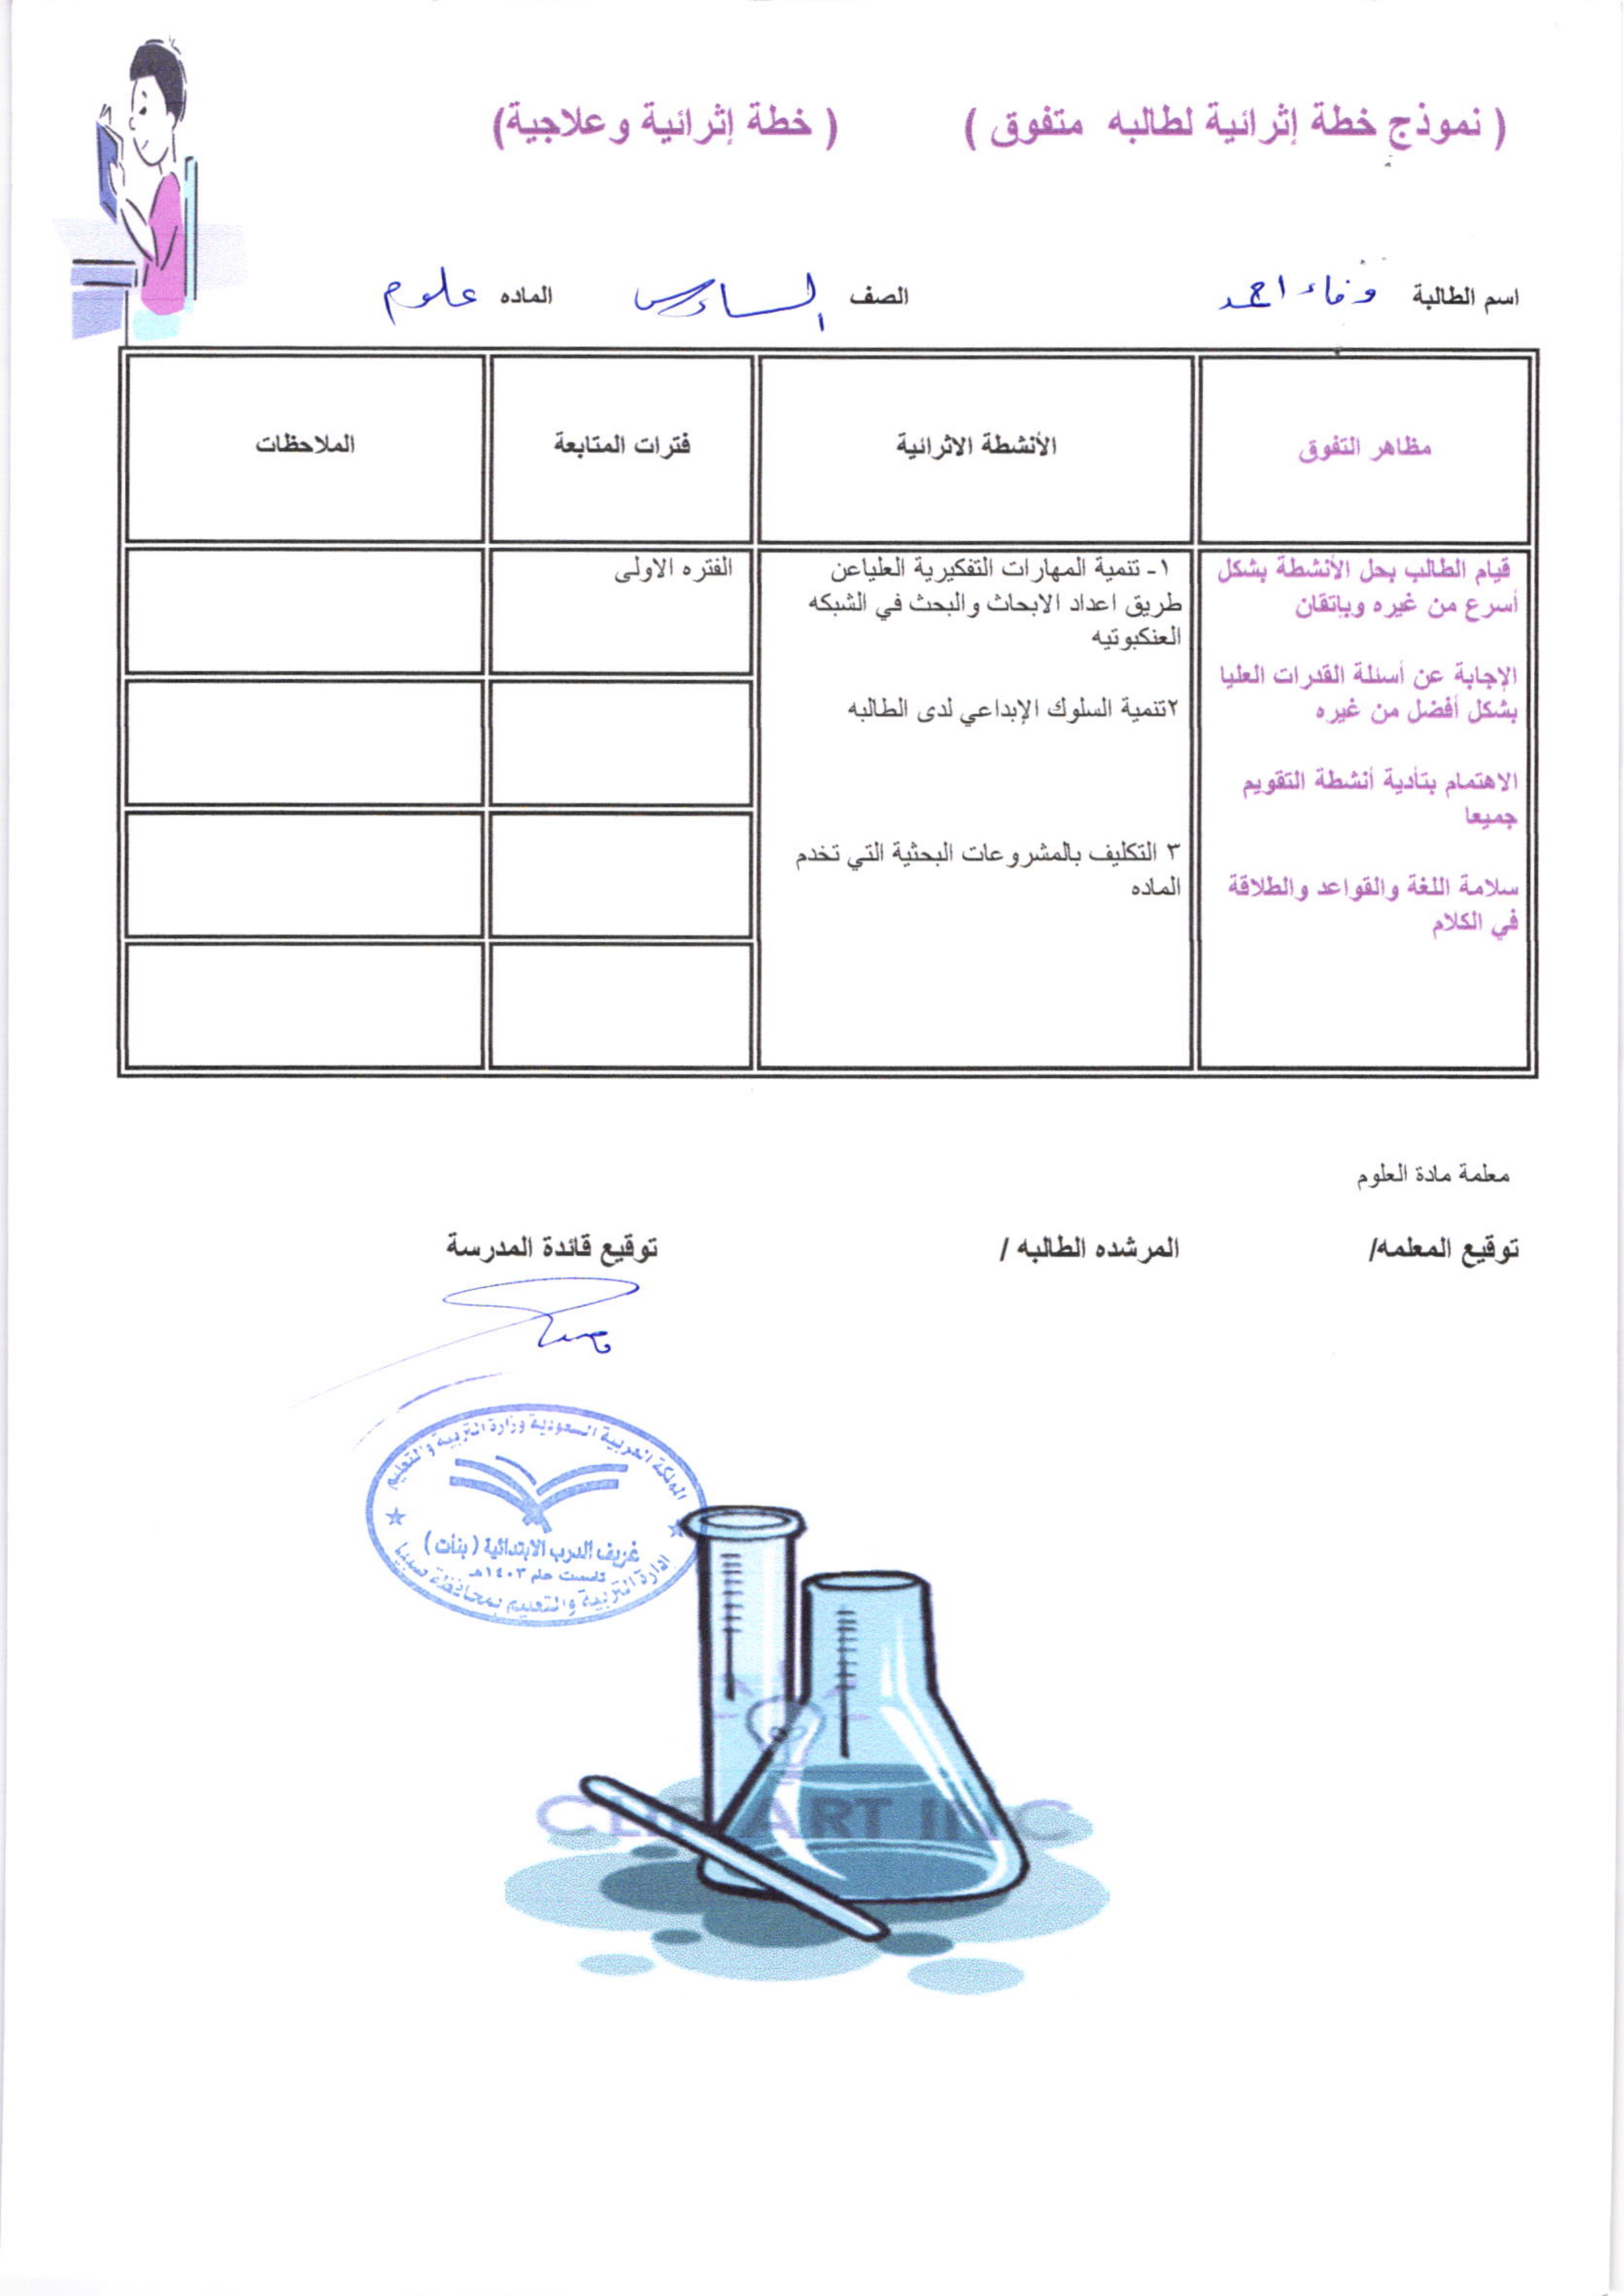 ( نموذج خطة إثرائية لطالبه متفوق ) ( خطة إثرائية وعلاجية)
اسم الطالبة وفاء احمد الصف السادس الماده علوم
مظاهر التفوق الأنشطة الاثرائية فترات المتابعة الملاحظات
قيام الطالب بحل الأنشطة بشكل
أسرع من غيره وبإتقان
الإجابة عن أسئلة القدرات العليا
بشكل أفضل من غيره
الاهتمام بتأدية أنشطة التقويم
جميعا
سلامة اللغة والقواعد والطلاقة
في الكلام
١- تنمية المهارات التفكيرية العلياعن
طريق اعداد الابحاث والبحث في الشبكه
العنكبوتيه
٢تنمية السلوك الإبداعي لدى الطالبه
٣ التكليف بالمشروعات البحثية التي تخدم
الماده
الفتره الاولى
معلمة مادة العلوم
توقيع المعلمه/ المرشده الطالبه / توقيع قائدة المدرسة
المملكة العربية السعودية وزارة التربية والتعليم
الدرب الابتدائية ( بنات )
تأسست عام ١٤٠٣هـ
ادارة التربية والتعليم بمحافظة صبيا
CLIPART INC